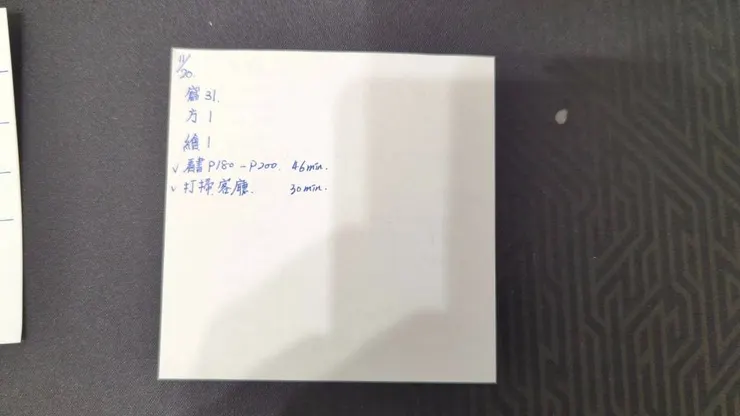 11/20.
方 1
繪 1
✓ 看書 P180-P200. 46min.
✓ 打掃客廳. 30min.